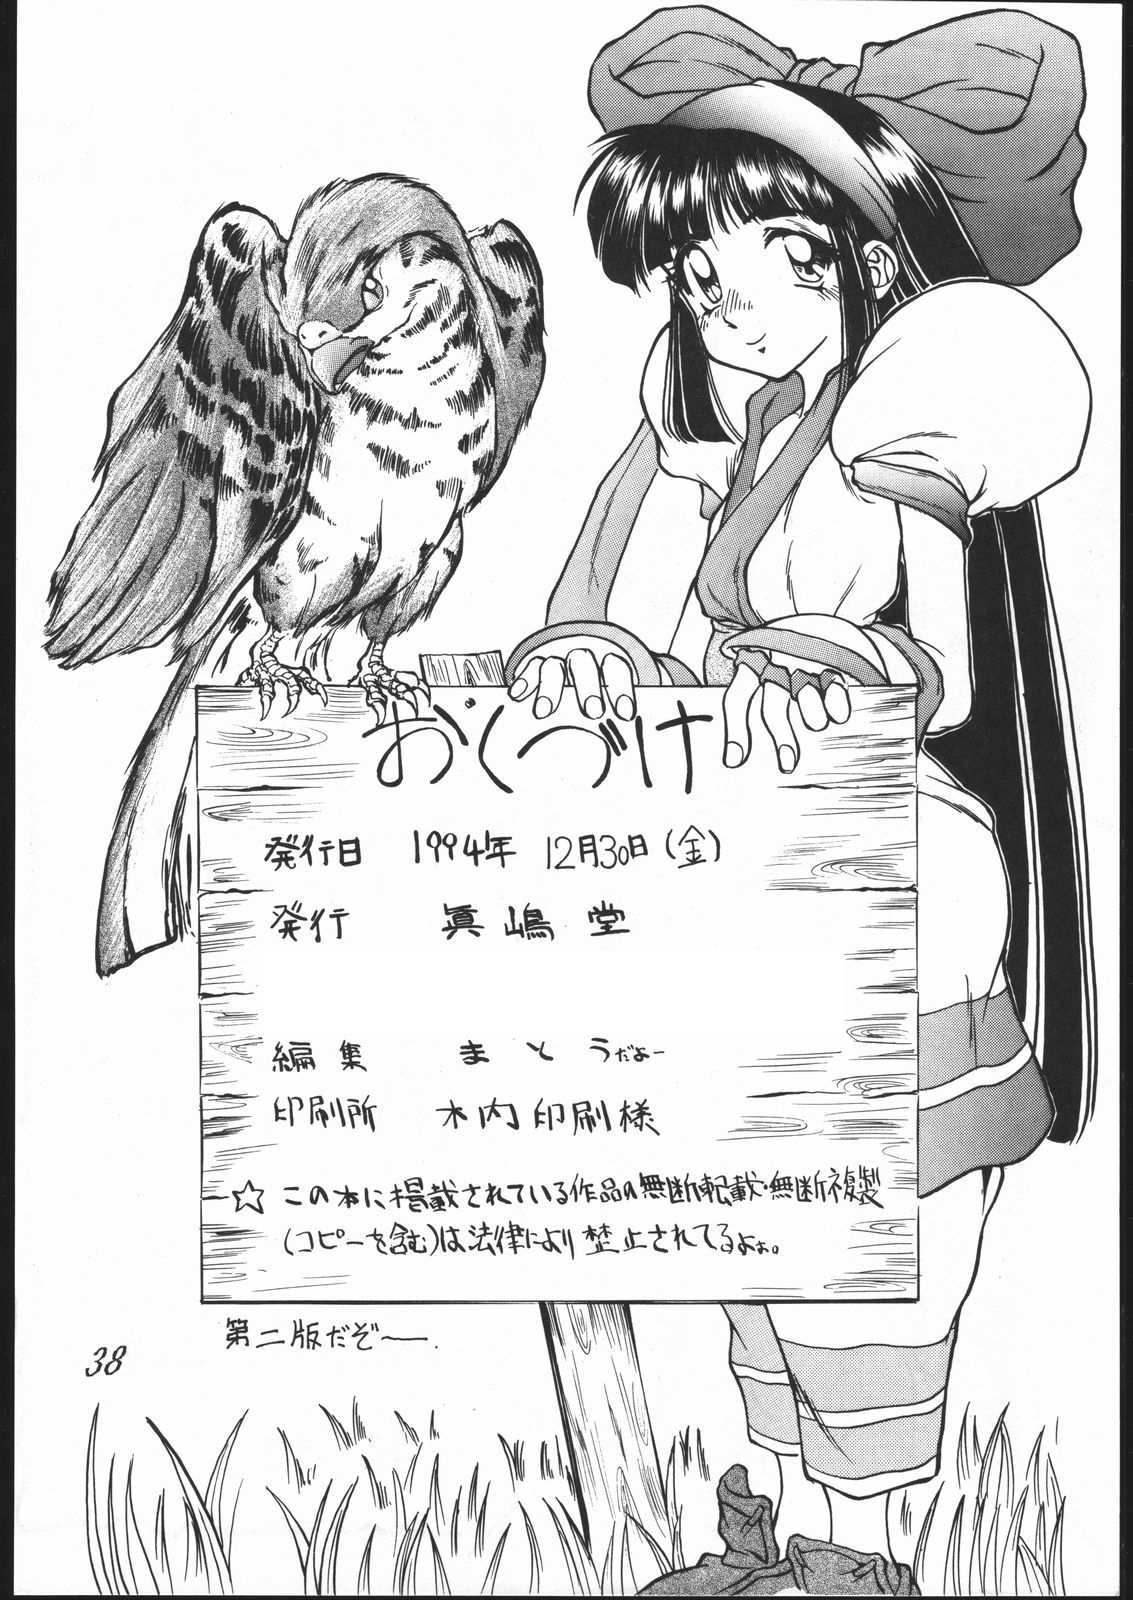 おくづけ
発行日 1994年 12月30日(金)
発行 眞嶋堂
編集 まとうだよー
印刷所 木内印刷様
☆この本に掲載されている作品の無断転載・無断複製
(コピーを含む)は法律により禁止されてるよぉ。
第二版だぞ〜.
38